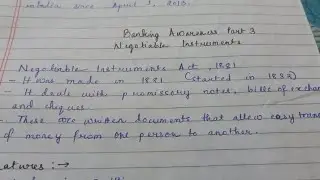 india since April 1, 2018.
Banking Awareness Part 3
Negotiable Instruments
Negotiable Instruments Act, 1881
- It was made in 1881 (started in 1882)
- It deals with promissory notes, bills of exchan
and cheques.
- These are written documents that allow easy trans
of money from one person to another.
eatures :→